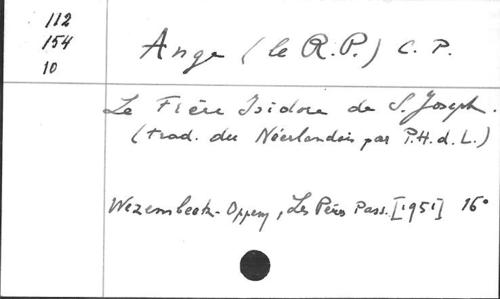 112
154
10
Ange (le R.P.) C. P.
Le Frère Isidore de S. Joseph.
(trad. du Néerlandais par P.H. d. L.)
Wezembeek-Oppem, Les Pères Pass. [1951] 16°